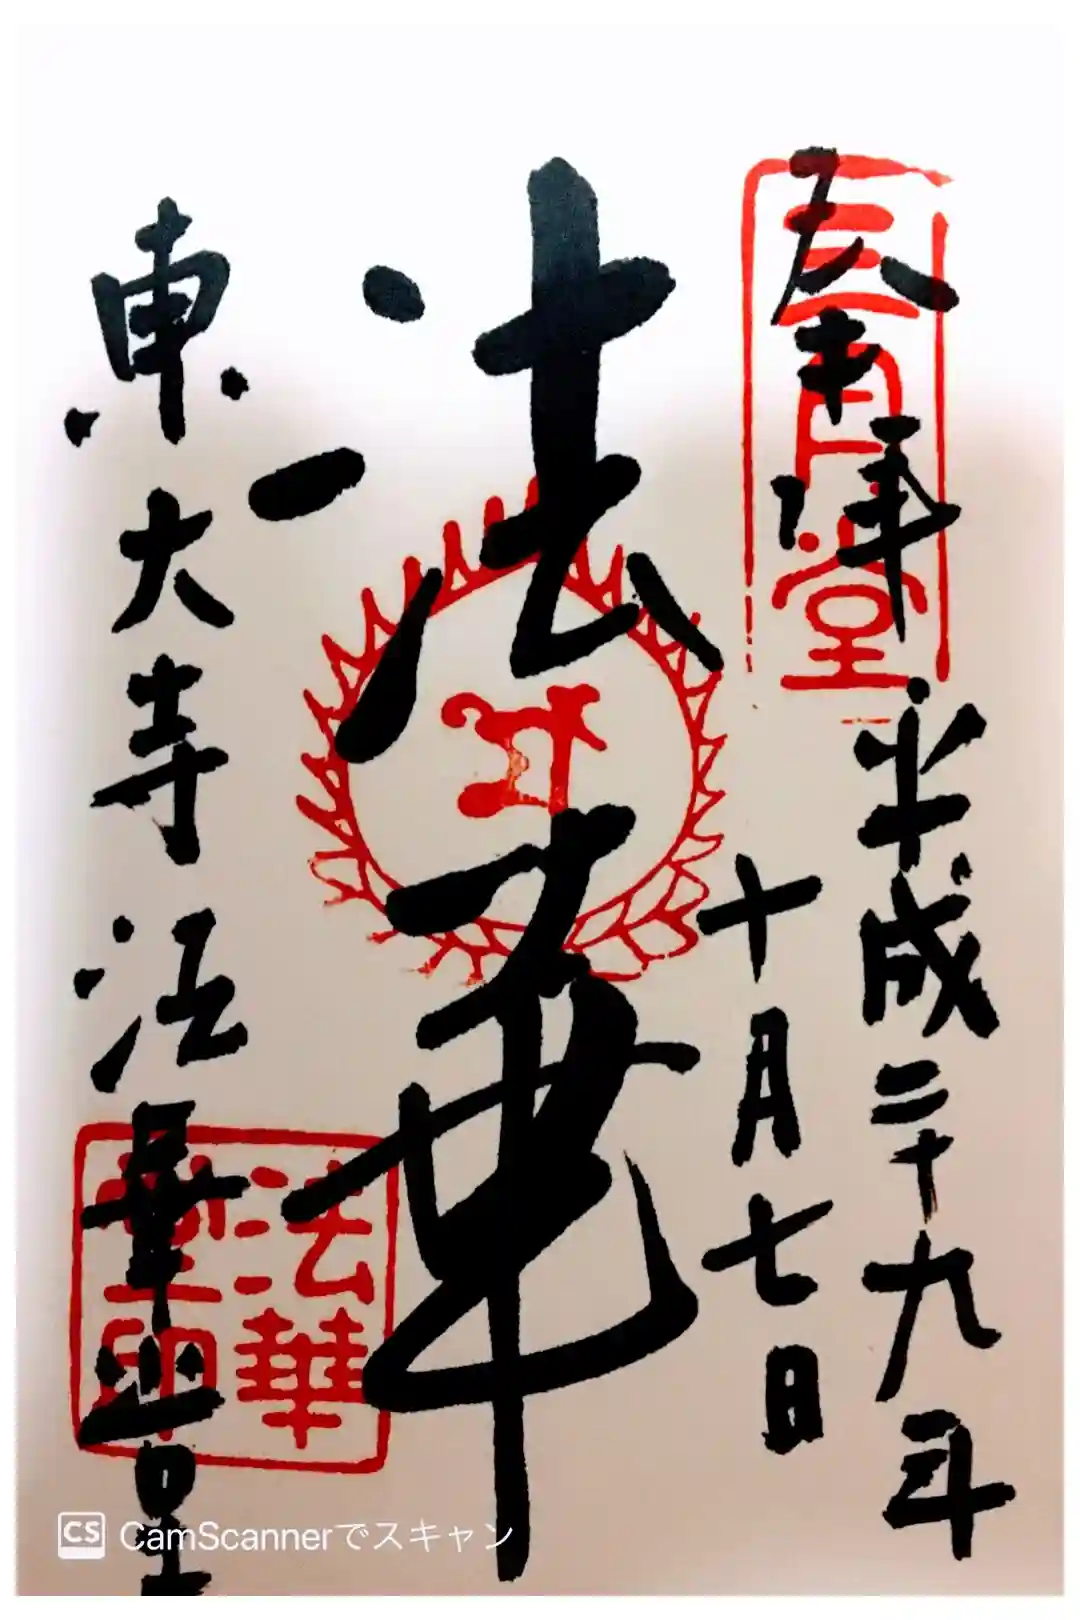 奉拝
三月堂
平成二十九年
十月七日
法華
東大寺法華堂
法華
堂印
CS CamScannerでスキャン